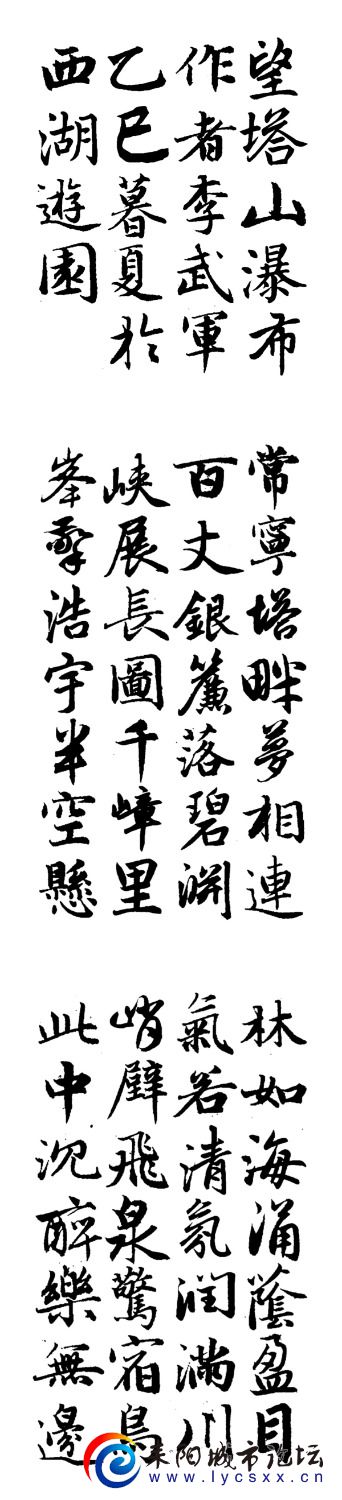 望塔山瀑布
作者李武軍
乙巳暮夏於
西湖遊園
常寧塔畔夢相連
百丈銀簾落碧淵
峽展長圖千嶂里
峯擎浩宇半空懸
林如海涌蔭盈目
氣若清氛潤滿川
峭壁飛泉驚宿鳥
此中沉醉樂無邊
耒阳城市论坛
www.lycsxx.cn